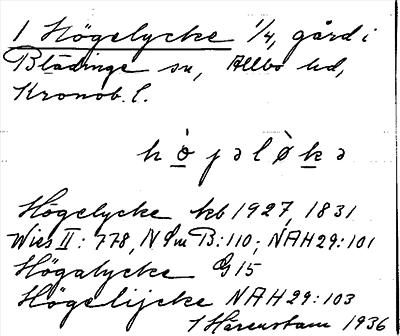 1 Högelycke 1/4, gård i
Blädinge sn, Allbo hd,
Kronob. l.
h ò j ə l ò k ə
Högelycke kb 1927, 1831
Wies II: 778, N Sm B: 110; NAH 29: 101
Högalycke G 15
Högelijcke NAH 29: 103
1 Härenstam 1936